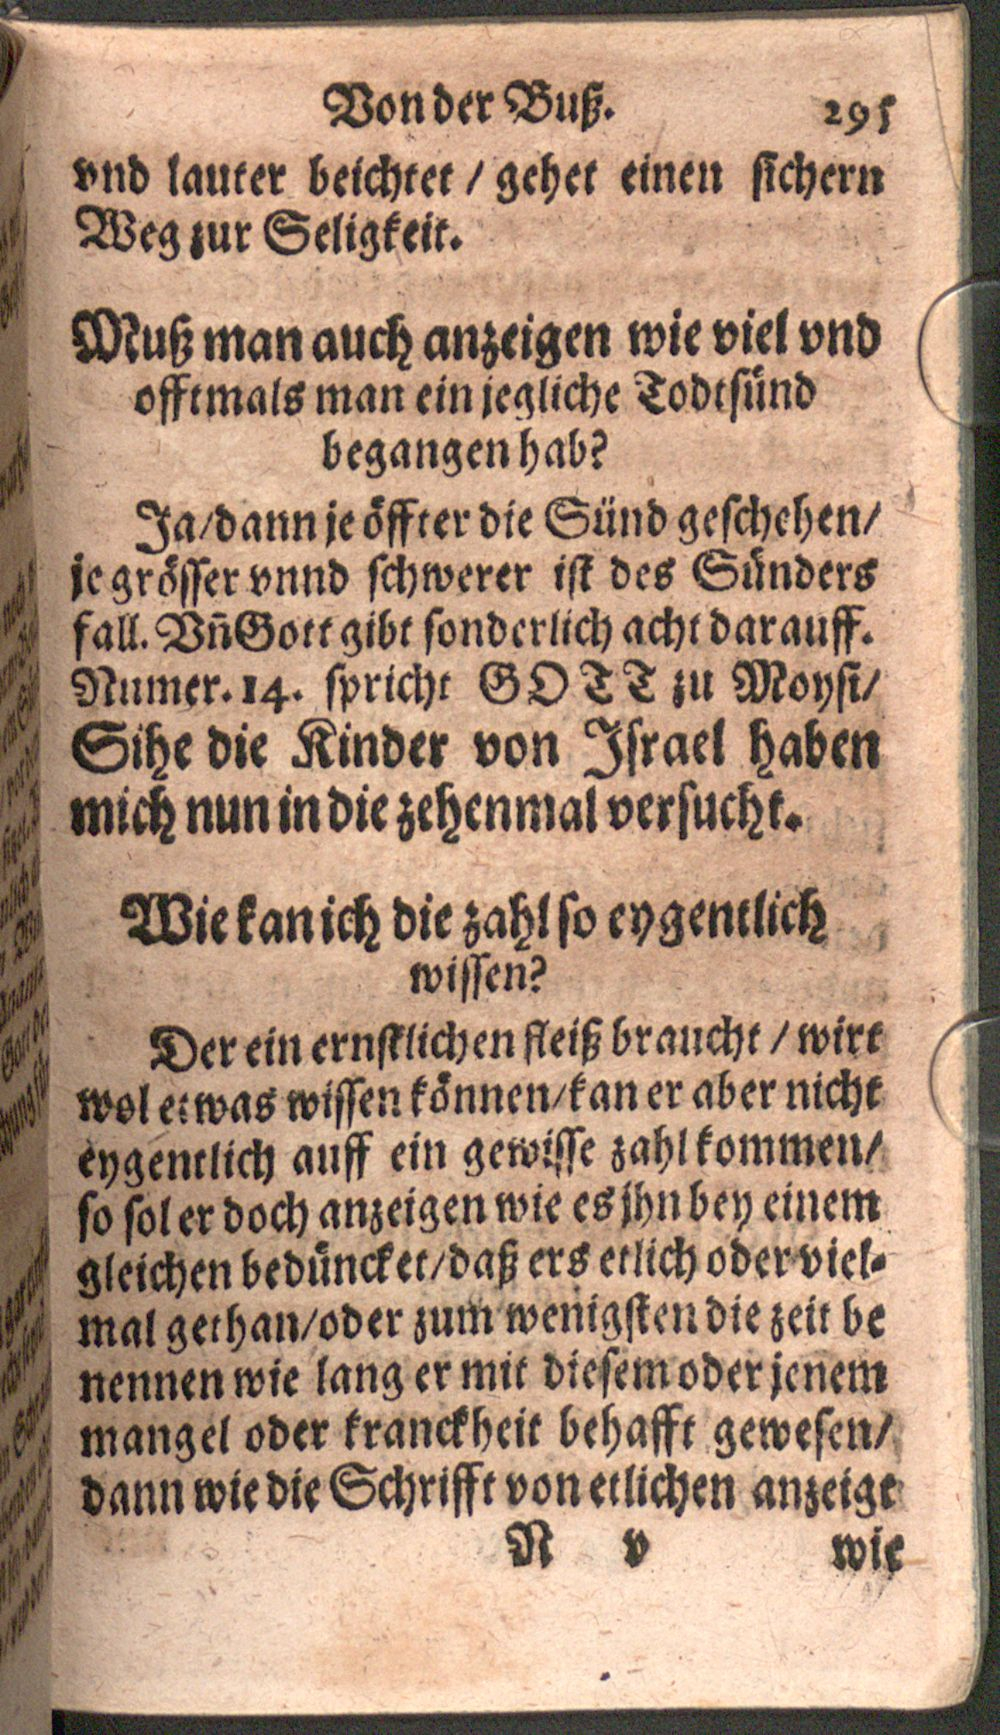 Von der Buß. 295
vnd lauter beichtet / gehet einen sichern
Weg zur Seligkeit.
Muß man auch anzeigen wie viel vnd
offtmals man ein jegliche Todtsünd
begangen hab?
Ja/dann je öffter die Sünd geschehen/
je grösser vnnd schwerer ist des Sünders
fall. Vn̄ Gott gibt sonderlich acht darauff.
Numer. 14. spricht GOTT zu Moysi/
Sihe die Kinder von Israel haben
mich nun in die zehenmal versucht.
Wie kan ich die zahl so eygentlich
wissen?
Der ein ernstlichen fleiß braucht / wirt
wol etwas wissen können/kan er aber nicht
eygentlich auff ein gewisse zahl kommen/
so sol er doch anzeigen wie es jhn bey einem
gleichen bedüncket/daß ers etlich oder viel-
mal gethan/oder zum wenigsten die zeit be
nennen wie lang er mit diesem oder jenem
mangel oder kranckheit behafft gewesen/
dann wie die Schrifft von etlichen anzeigt
N v wie